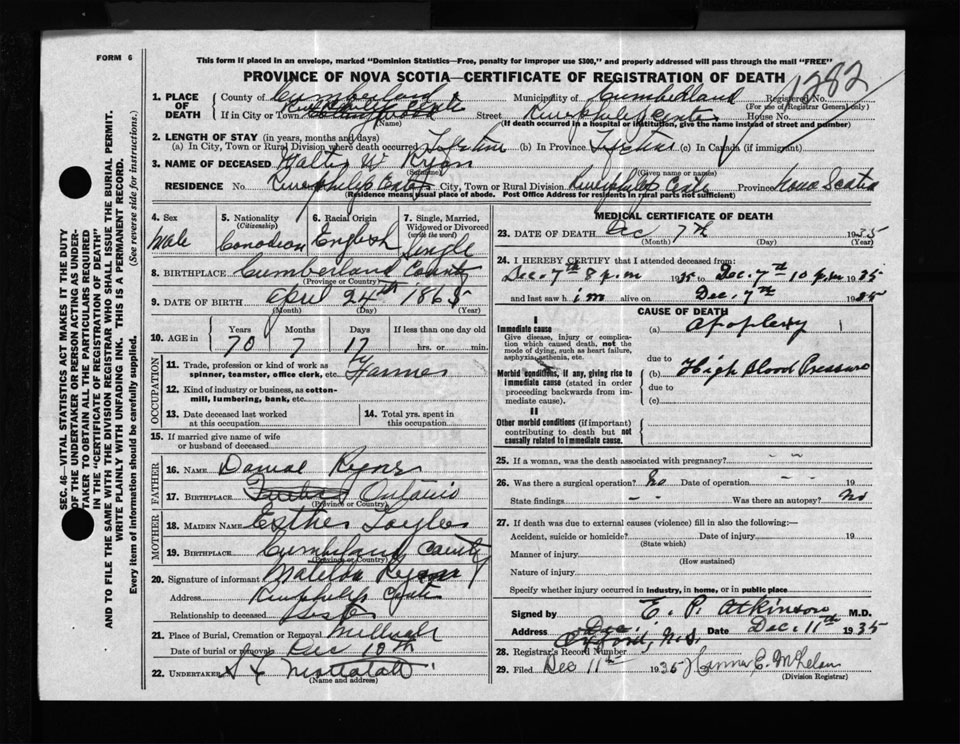 FORM 6
This form if placed in an envelope, marked "Dominion Statistics—Free, penalty for improper use $300," and properly addressed will pass through the mail "FREE"
PROVINCE OF NOVA SCOTIA—CERTIFICATE OF REGISTRATION OF DEATH
1282
1. PLACE OF DEATH
County of Cumberland Municipality of Cumberland Registered No.
(For use of Registrar General only)
If in City or Town Collingwood Street House No.
(Name) (If death occurred in a hospital or institution, give the name instead of street and number)
2. LENGTH OF STAY (in years, months and days)
(a) In City, Town or Rural Division where death occurred Lifetime (b) In Province Lifetime (c) In Canada (if immigrant)
3. NAME OF DECEASED Walter W Ryan
(Surname) (Given name or names)
RESIDENCE No. City, Town or Rural Division Province Nova Scotia
(Residence means usual place of abode. Post Office Address for residents in rural parts not sufficient)
4. Sex
Male
5. Nationality
(Citizenship)
Canadian
6. Racial Origin
English
7. Single, Married, Widowed or Divorced
(write the word)
Single
8. BIRTHPLACE Cumberland County
(Province or Country)
9. DATE OF BIRTH April 24th 1865
(Month) (Day) (Year)
10. AGE in
Years Months Days If less than one day old
70 7 17 hrs. or min.
OCCUPATION
11. Trade, profession or kind of work as spinner, teamster, office clerk, etc. Farmer
12. Kind of industry or business, as cotton-mill, lumbering, bank, etc.
13. Date deceased last worked at this occupation
14. Total yrs. spent in this occupation
15. If married give name of wife or husband of deceased
FATHER
16. NAME Ryan
17. BIRTHPLACE Ontario
(Province or Country)
MOTHER
18. MAIDEN NAME Esther
19. BIRTHPLACE Cumberland County
(Province or Country)
20. Signature of informant Matilda Ryan
Address
Relationship to deceased
21. Place of Burial, Cremation or Removal
Date of burial or removal Dec
22. UNDERTAKER
(Name and address)
MEDICAL CERTIFICATE OF DEATH
23. DATE OF DEATH Dec 7th 1935
(Month) (Day) (Year)
24. I HEREBY CERTIFY that I attended deceased from:
Dec. 7th 8 p.m 1935 to Dec. 7th 10 p.m 1935
and last saw him alive on Dec. 7th 1935
CAUSE OF DEATH
I
Immediate cause
Give disease, injury or complication which caused death, not the mode of dying, such as heart failure, asphyxia, asthenia, etc.
(a) apoplexy
due to
Morbid conditions, if any, giving rise to immediate cause (stated in order proceeding backwards from immediate cause).
(b) High Blood Pressure
due to
(c)
II
Other morbid conditions (if important) contributing to death but not causally related to immediate cause.
25. If a woman, was the death associated with pregnancy? - -
26. Was there a surgical operation? No Date of operation - - 19
State findings - - Was there an autopsy? No
27. If death was due to external causes (violence) fill in also the following:—
Accident, suicide or homicide? Date of injury 19
(State which)
Manner of injury
(How sustained)
Nature of injury
Specify whether injury occurred in industry, in home, or in public place
Signed by E. P. Atkinson M.D.
Address Oxford, N.S. Date Dec. 11th 1935
28. Registrar's Record Number
29. Filed Dec 11th 1935
(Division Registrar)
SEC. 46—VITAL STATISTICS ACT MAKES IT THE DUTY
OF THE UNDERTAKER OR PERSON ACTING AS UNDERTAKER TO OBTAIN ALL THE PARTICULARS REQUIRED
IN THE "CERTIFICATE OF REGISTRATION OF DEATH"
AND TO FILE THE SAME WITH THE DIVISION REGISTRAR WHO SHALL ISSUE THE BURIAL PERMIT.
WRITE PLAINLY WITH UNFADING INK. THIS IS A PERMANENT RECORD.
Every item of information should be carefully supplied. (See reverse side for instructions.)